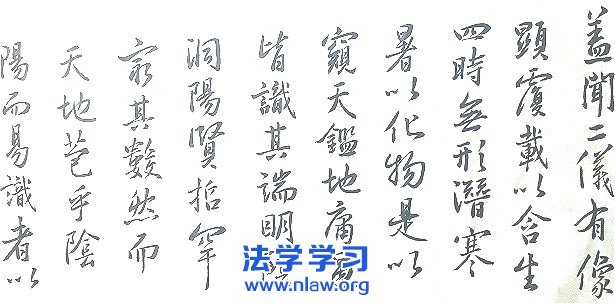 蓋聞二儀有像
顯覆載以含生
四時無形潛寒
暑以化物是以
窺天鑑地庸愚
皆識其端明陰
洞陽賢哲罕
窮其數然而
天地苞乎陰
陽而易識者以
法学学习
www.nlaw.org